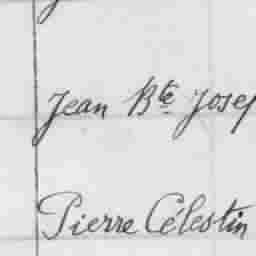 Jean Bte Josep
Pierre Célestin